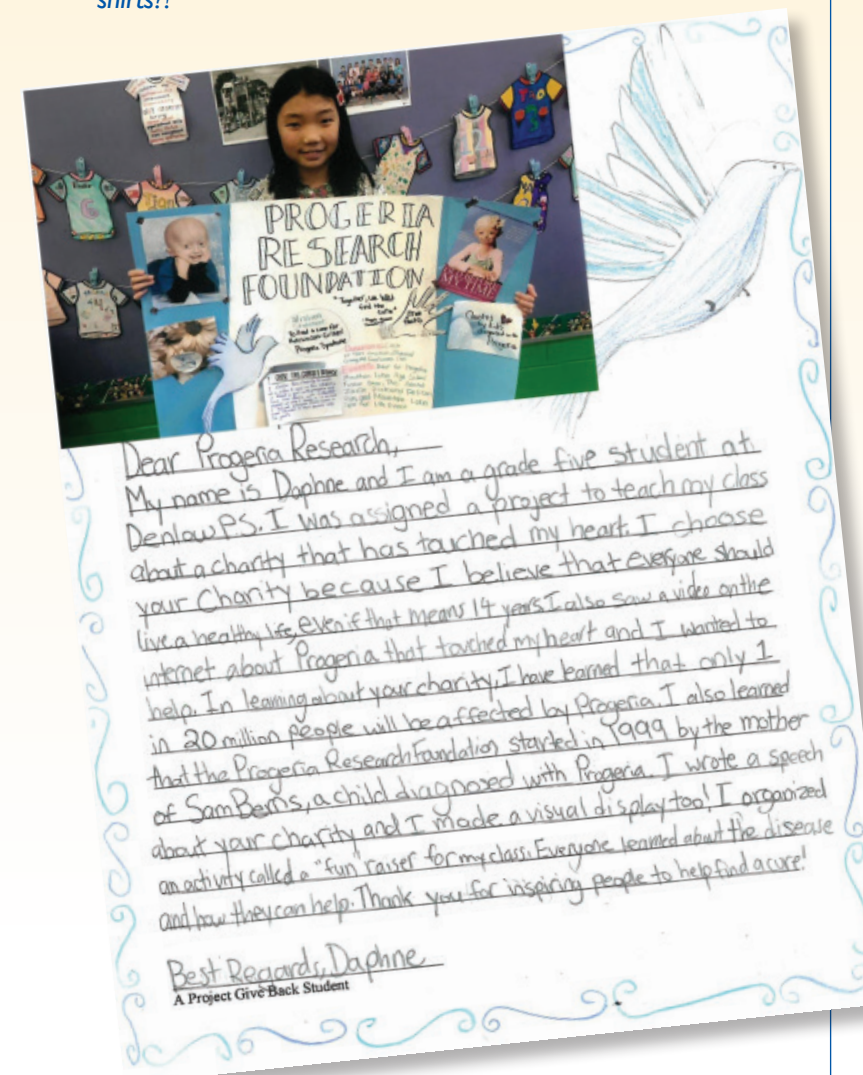 shirts!!
PROGERIA
RESEARCH
FOUNDATION
"Together, We Will
find the
Cure"
MY TIME
Progeria
Dear Progeria Research,
My name is Daphne and I am a grade five student at
Denlow PS. I was assigned a project to teach my class
about a charity that has touched my heart. I choose
your Charity because I believe that everyone should
live a healthy life, even if that means 14 years. I also saw a video on the
internet about Progeria that touched my heart and I wanted to
help. In learning about your charity, I have learned that only 1
in 20 million people will be affected by Progeria. I also learned
that the Progeria Research Foundation started in 1999 by the mother
of Sam Berns, a child diagnosed with Progeria. I wrote a speech
about your charity and I made a visual display too! I organized
an activity called a "fun" raiser for my class. Everyone learned about the disease
and how they can help. Thank you for inspiring people to help find a cure!
Best Regards, Daphne
A Project Give Back Student